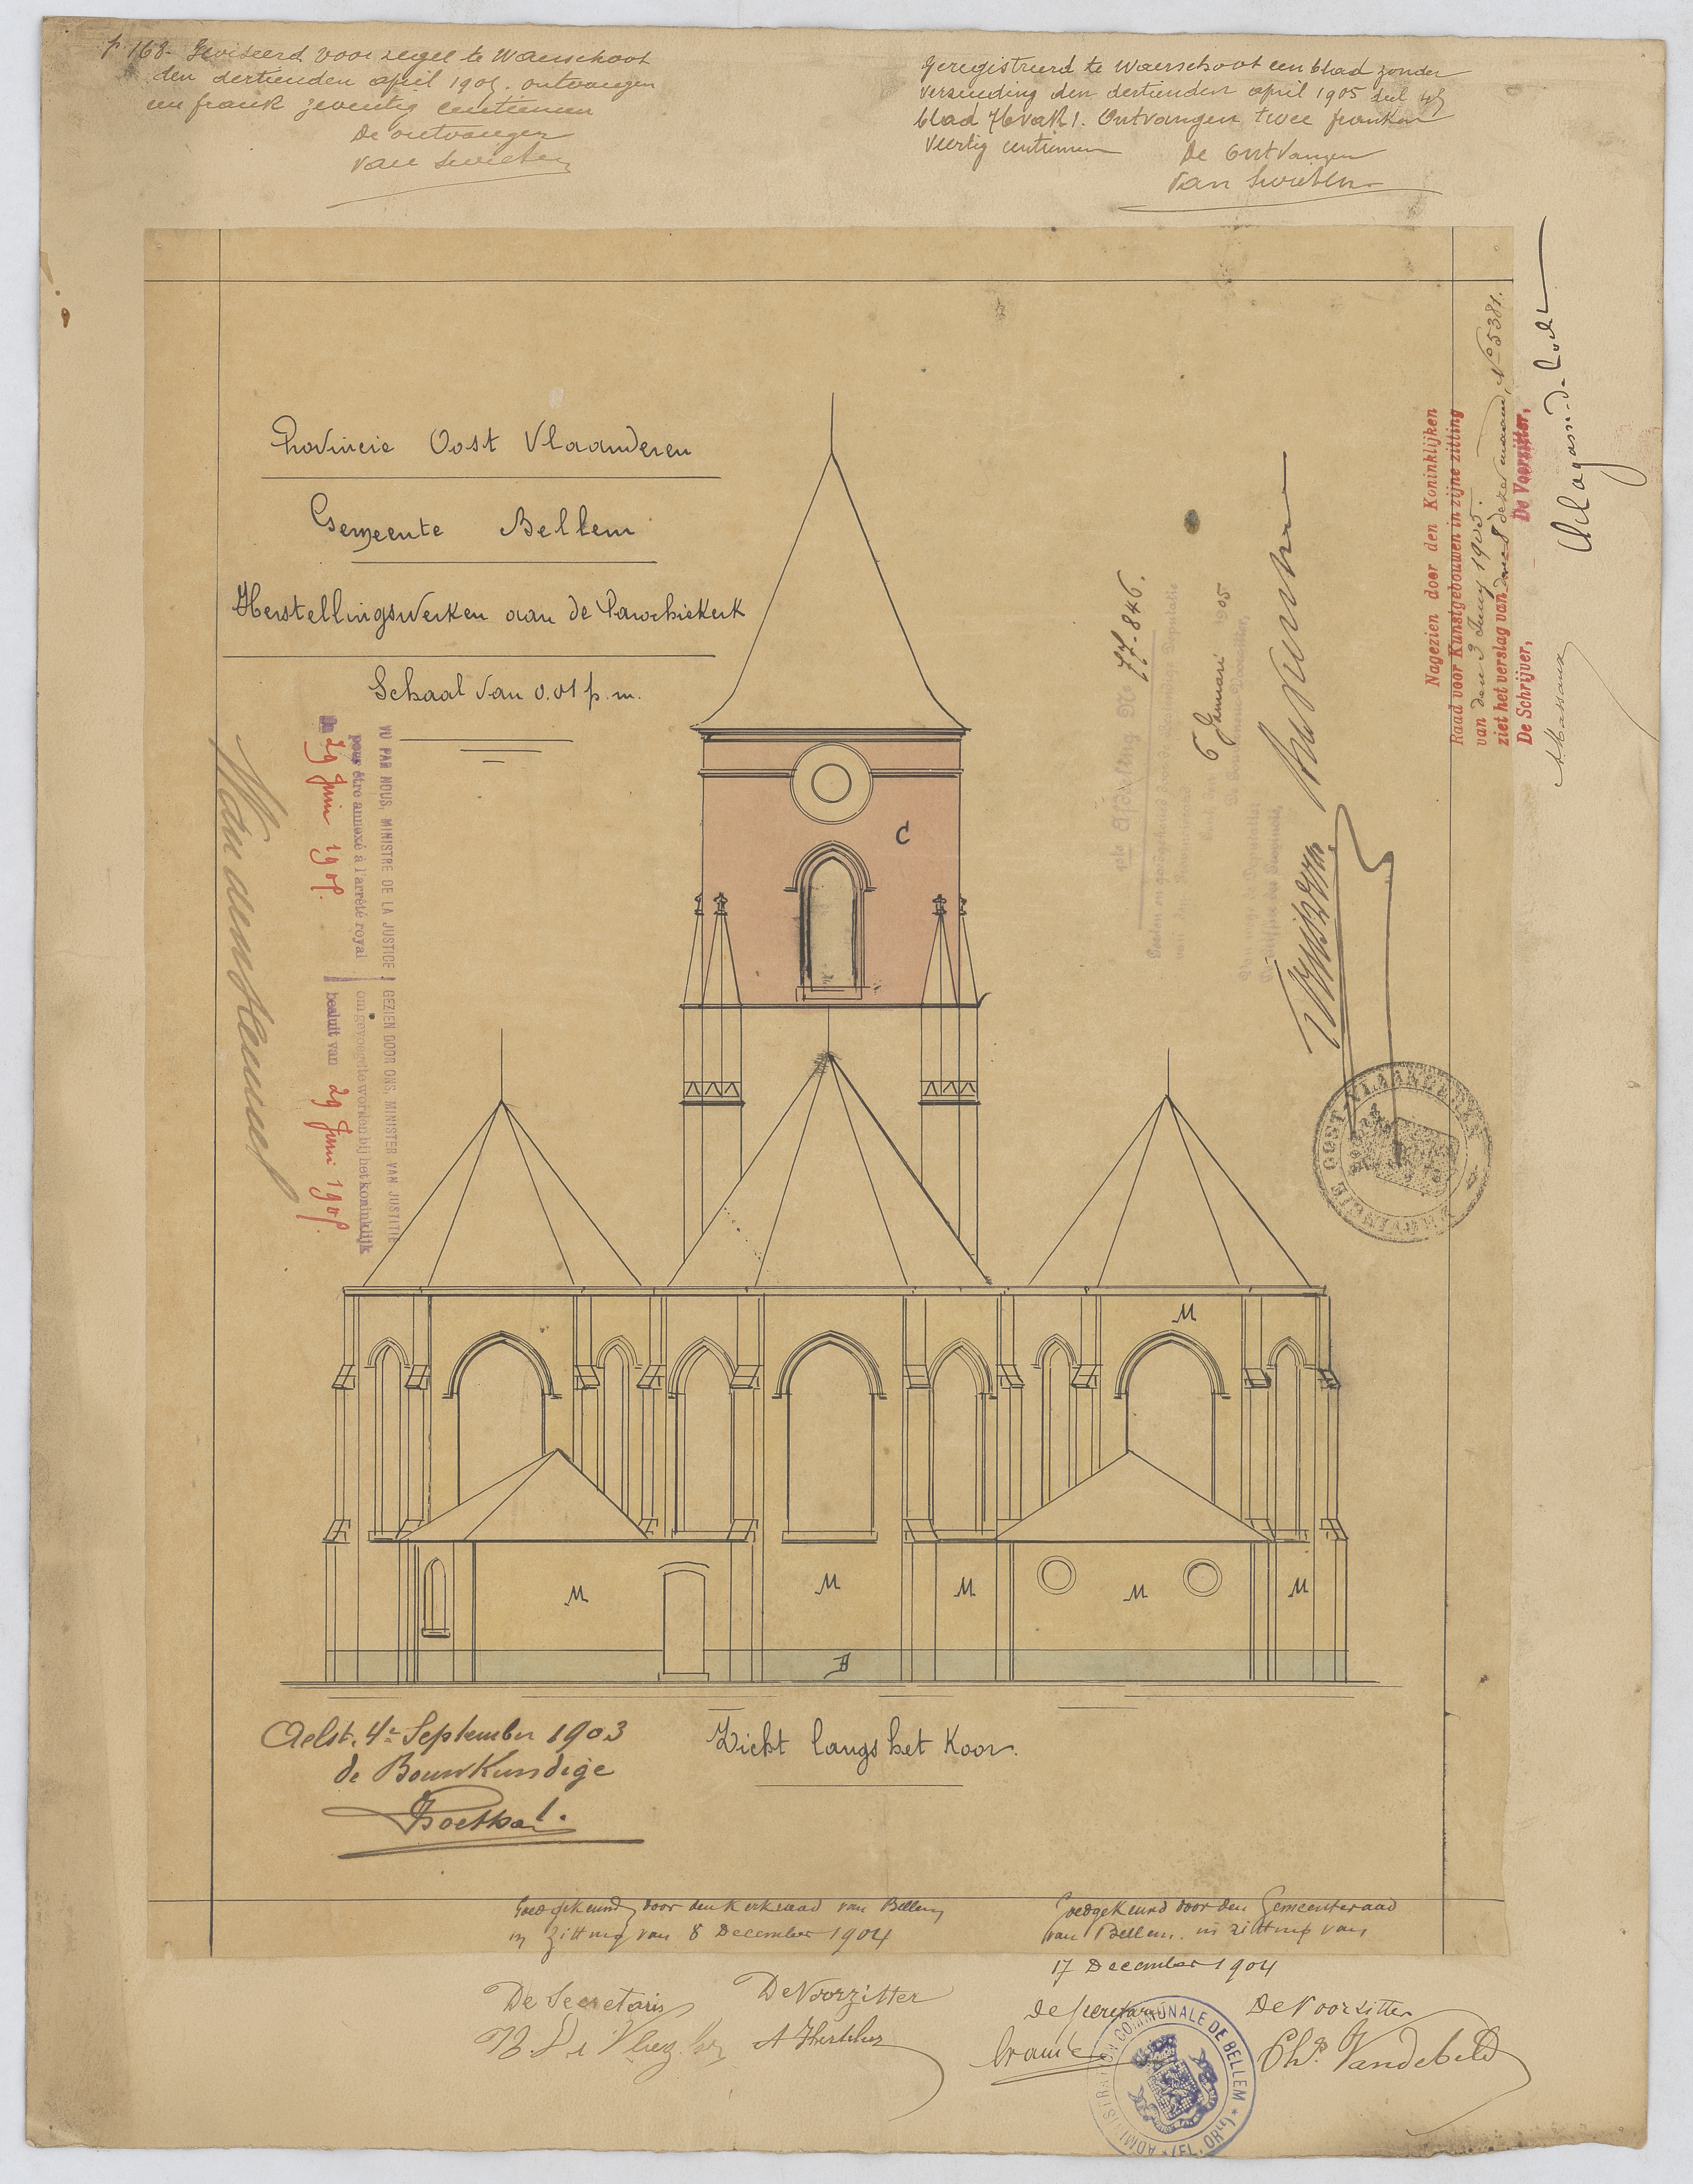 p. 168. Geviseerd voor zegel te Waerschoot
den dertienden april 1905. ontvangen
een frank zeventig centiemen
De ontvanger
Van Swieten
Geregistreerd te Waerschoot een blad zonder
verzending den dertienden april 1905 deel
blad 76 vak 1. Ontvangen twee franken
veertig centiemen
De Ontvanger
Van Swieten
Provincie Oost Vlaanderen
Gemeente Bellem
Herstellingswerken aan de Parochiekerk
Schaal van 0.01 p. m.
VU PAR NOUS, MINISTRE DE LA JUSTICE
pour être annexé à l'arrêté royal
Du 29 Juin 1905.
GEZIEN DOOR ONS, MINISTER VAN JUSTITIE
om gevoegd te worden bij het koninklijk
besluit van 29 Juni 1905.
Van den Heuvel
1ste Afdeeling No 77.846.
Gezien en goedgekeurd door de Bestendige Deputatie
6 Januari 1905
Nagezien door den Koninklijken
Raad voor Kunstgebouwen in zijne zitting
van den 3 Juny 1905.
ziet het verslag van dezer maand, No 5381.
De Schrijver,
De Voorzitter,
OOST-VLAANDEREN
PROVINCIE
C
M
M
M
M
M
M
B
Zicht langs het Koor.
Aelst, 4n September 1903
de Bouwkundige
Goedgekeurd door den Kerkraad van Bellem
in zitting van 8 December 1904
De Secretaris
De Voorzitter
Goedgekeurd door den Gemeenteraad
van Bellem in zitting van
17 December 1904
de secretaris
De Voorzitter
Chs. Vandebeld
ADMINISTRATION COMMUNALE DE BELLEM
(FL. ORle)